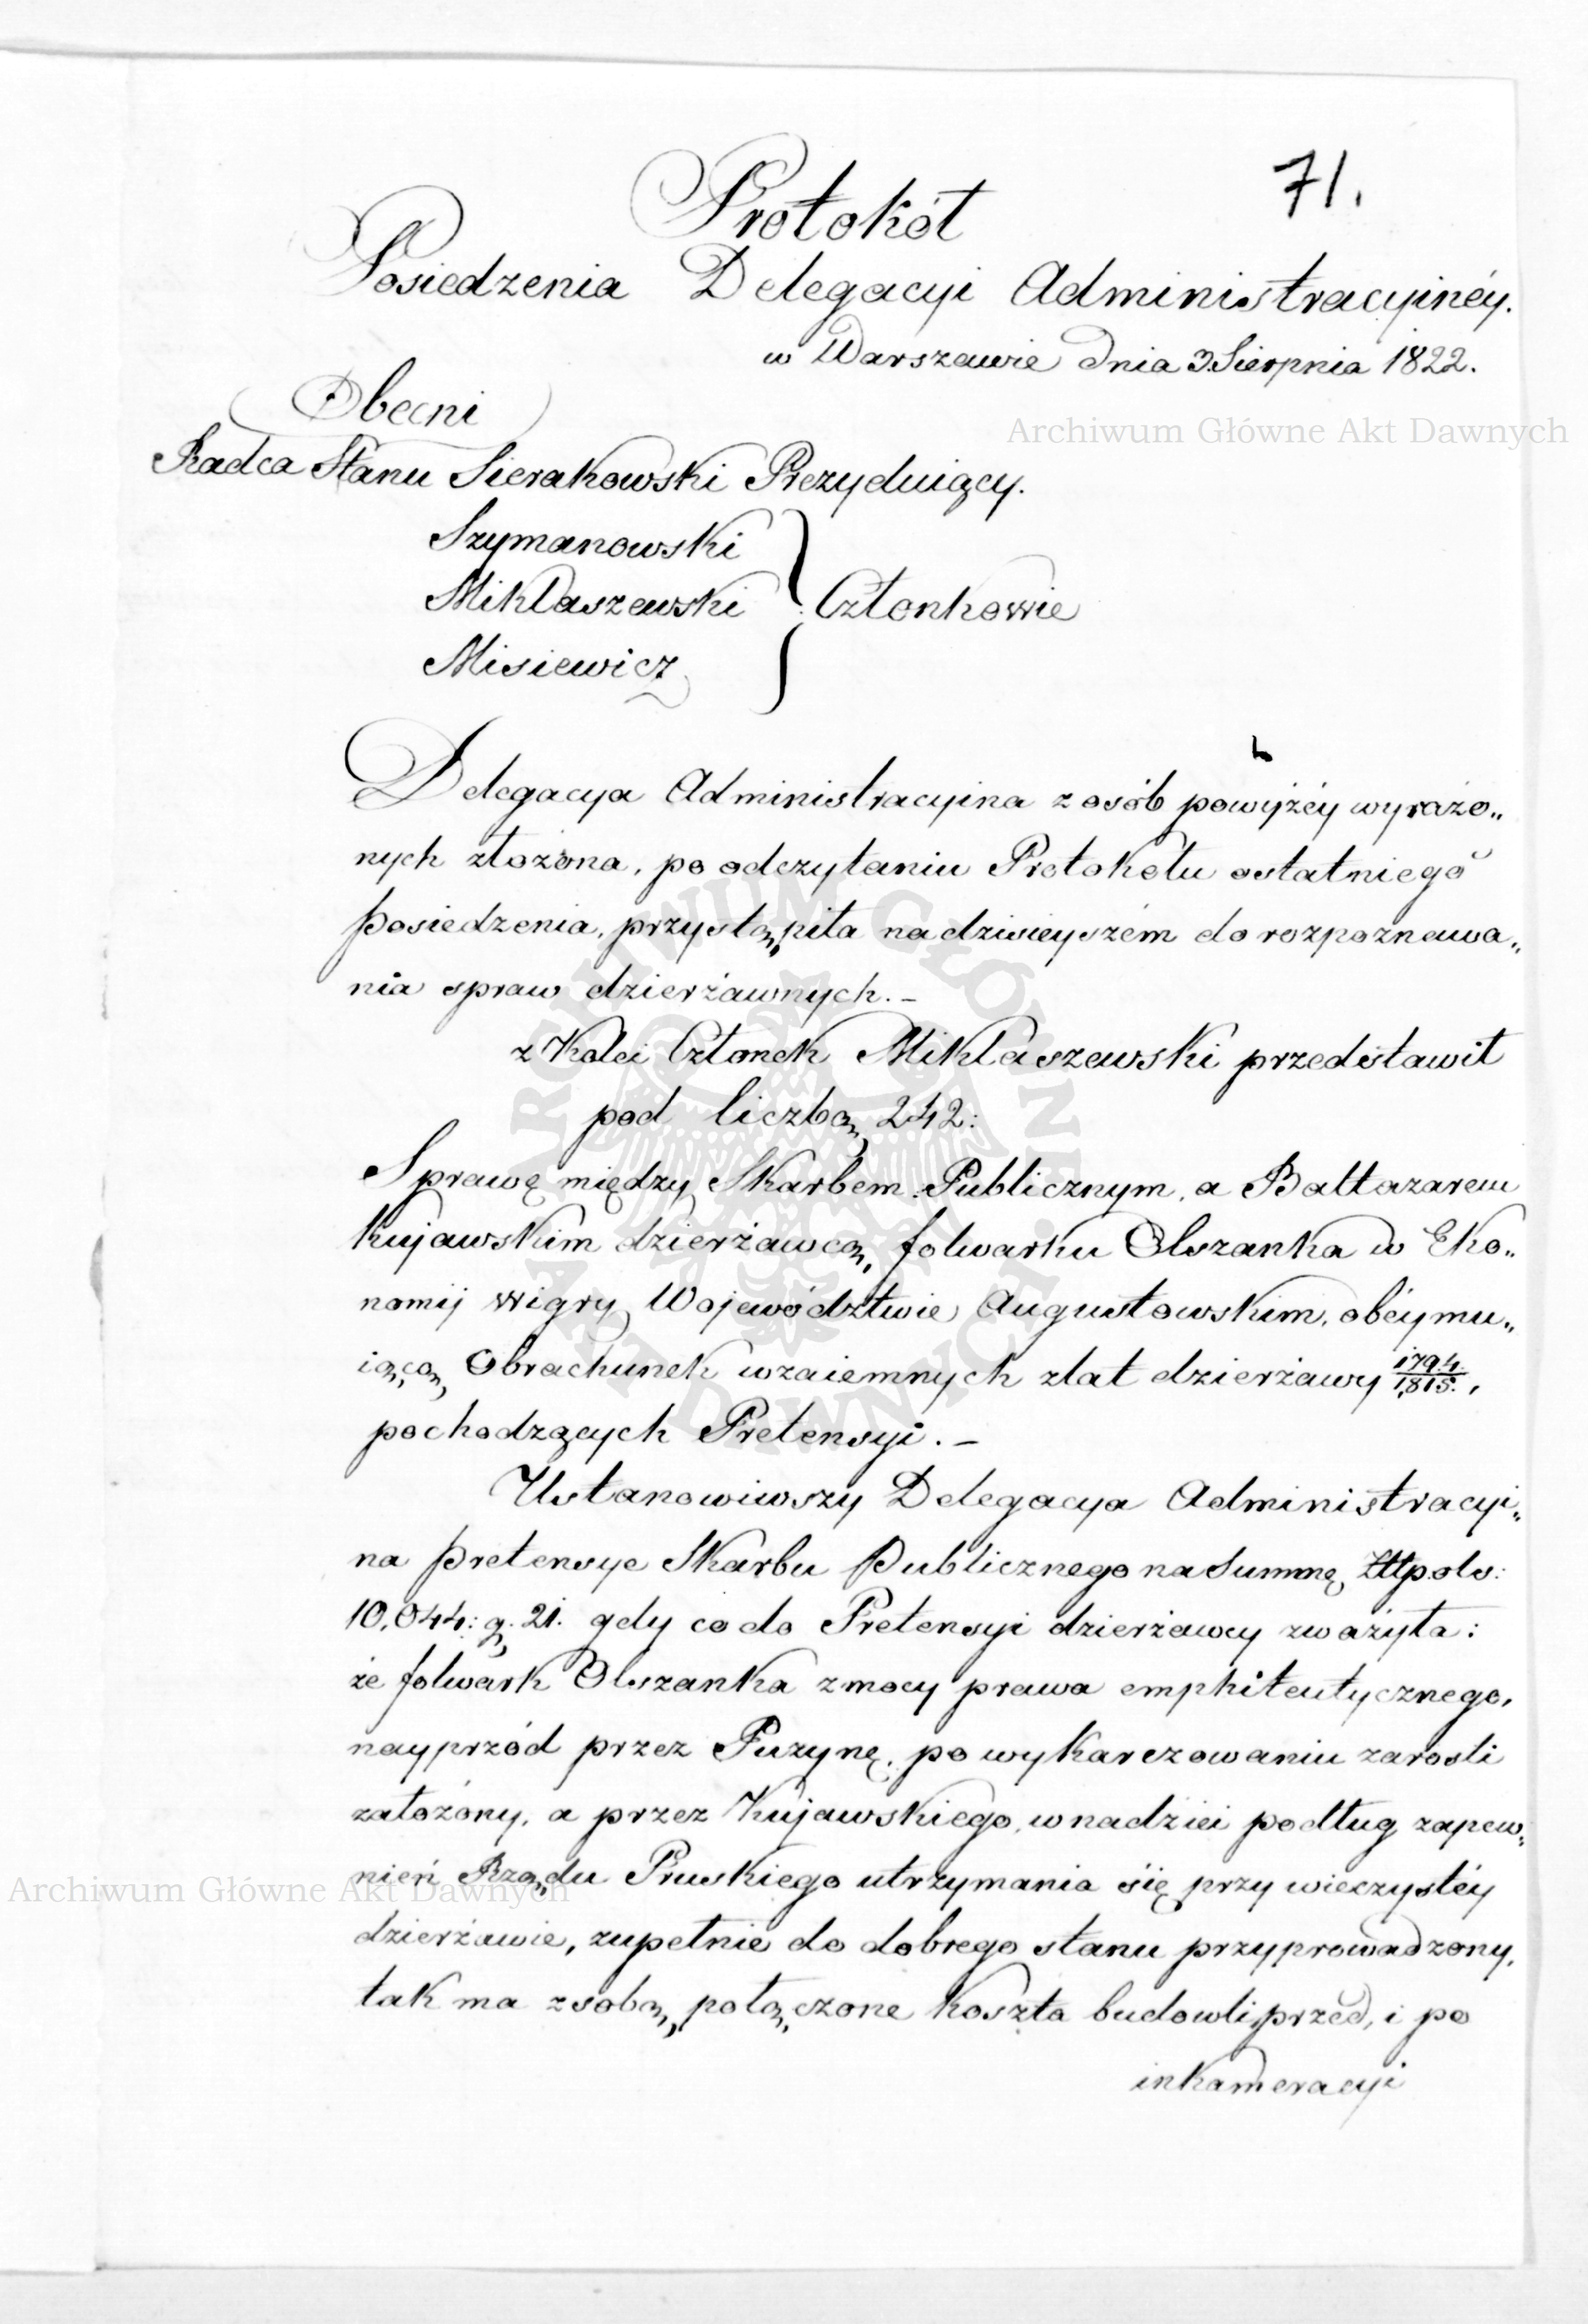 71.
Protokół
Posiedzenia Delegacyi Administracyinéy.
w Warszawie dnia 3. Sierpnia 1822.
Archiwum Główne Akt Dawnych
Obecni
Radca Stanu Sierakowski Prezyduiący.
Szymanowski
Mikłaszewski } Członkowie
Misiewicz
Delegacya Administracyina z osób powyżéy wyrażo„
nych złożona, po odczytaniu Protokołu ostatniego
posiedzenia, przystąpiła na dzisieyszém do rozpoznawa„
nia spraw dzierżawnych. –
z Kolei Członek Mikłaszewski przedstawił
pod liczbą 242:
Sprawę między Skarbem Publicznym, a Baltazarem
Kujawskim dzierżawcą, folwarku Olszanka w Eko„
nomij Wigry Województwie Augustowskim, obéymu„
iącą Obrachunek wzaiemnych z lat dzierżawy 1794/1815.,
pochodzących Pretensyi. –
Ustanowiwszy Delegacya Administracyi„
na pretensye Skarbu Publicznego na Summę Złtp. ols:
10,044: g. 21. gdy co do Pretensyi dzierżawcy zważyła:
że folwark Olszanka z mocy prawa emphiteutycznego,
nayprzód przez Puzynę, po wykarczowaniu zarosli
założony, a przez Kujawskiego, w nadziei podług zapew„
nień Rządu Pruskiego utrzymania się przy wieczystéy
dzierżawie, zupełnie do dobrego stanu przyprowadzony,
tak ma z sobą, połączone Koszta budowli przed, i po
inkameracyi
Archiwum Główne Akt Dawnych
ARCHIWUM GŁÓWNE AKT DAWNYCH